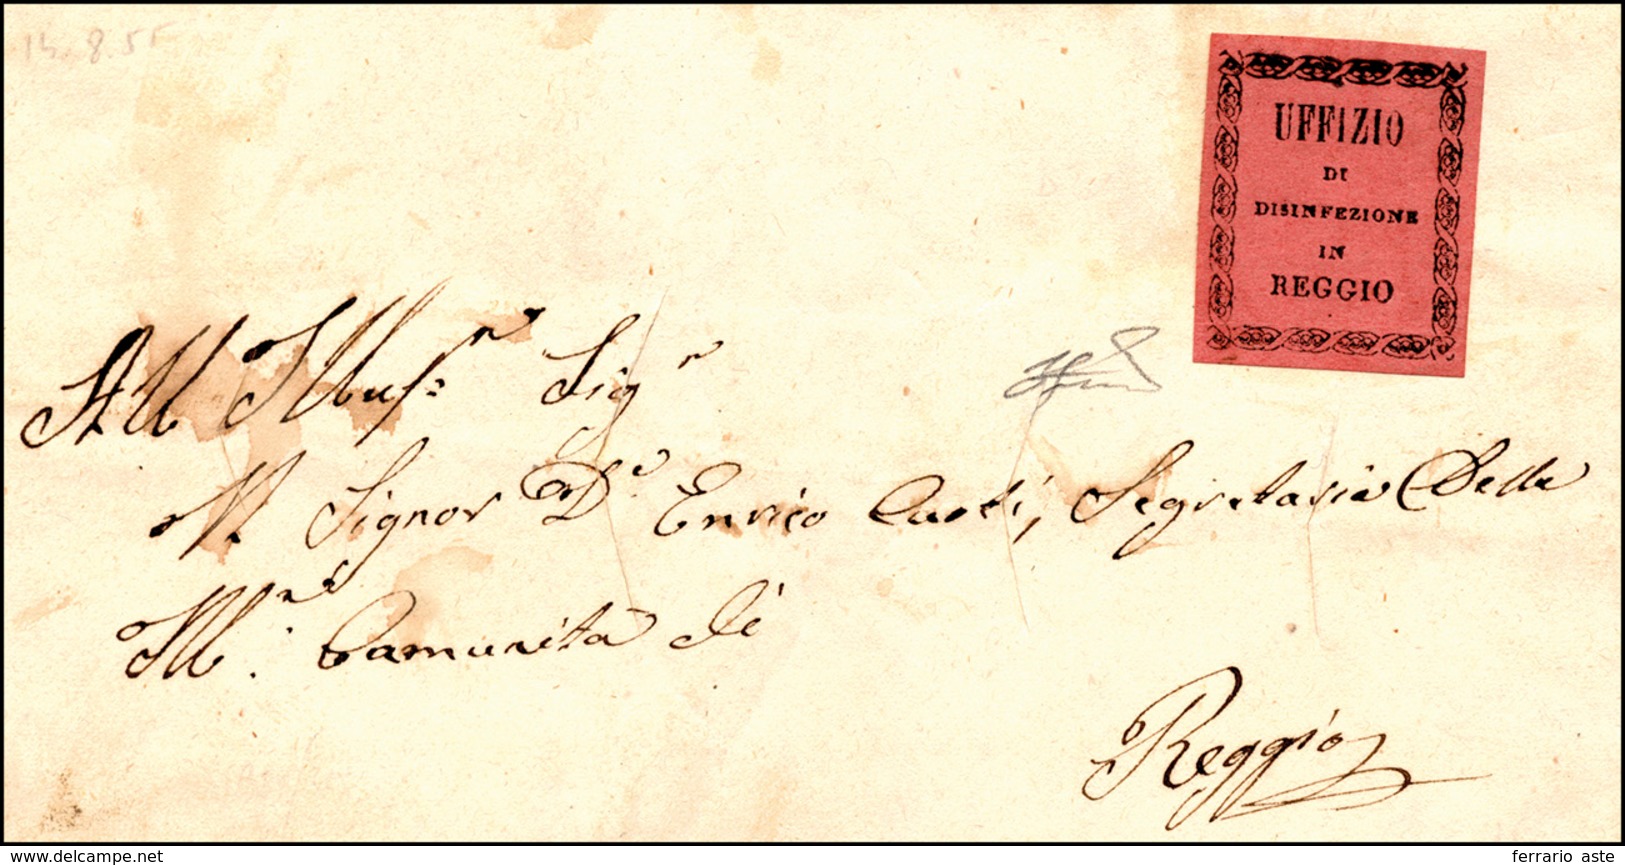 14.8.55
UFFIZIO
DI
DISINFEZIONE
IN
REGGIO
All Illus.mo Sig.r
Il Signor D.r Enrico Carli, Segretario Della
Ill.ma Comunità di
Reggio
delcampe.net
ferrario aste